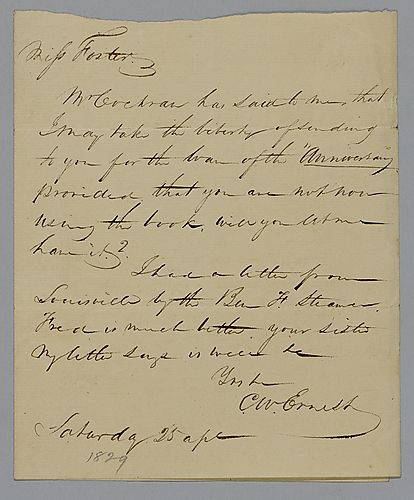 Miss Foster.
Mr Cochran has said to me, that
I may take the liberty of sending
to you for the loan of the "Anniversary"
provided, that you are not now
using the book, will you let me
have it.?
I had a letter from
Louisville by the Ben F. Steamer.
Fred is much better. your sister
my letter says is well &c
Yrs &c
C.W. Ernest
Saturday 25 apl
1829